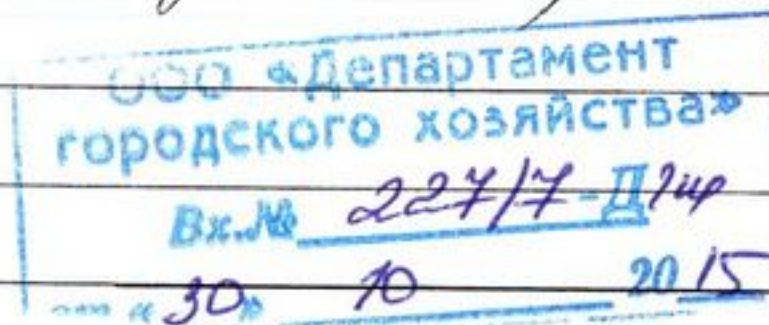 ООО «Департамент
городского хозяйства»
Вх.№ 227/7-Д
от «30» 10 2015